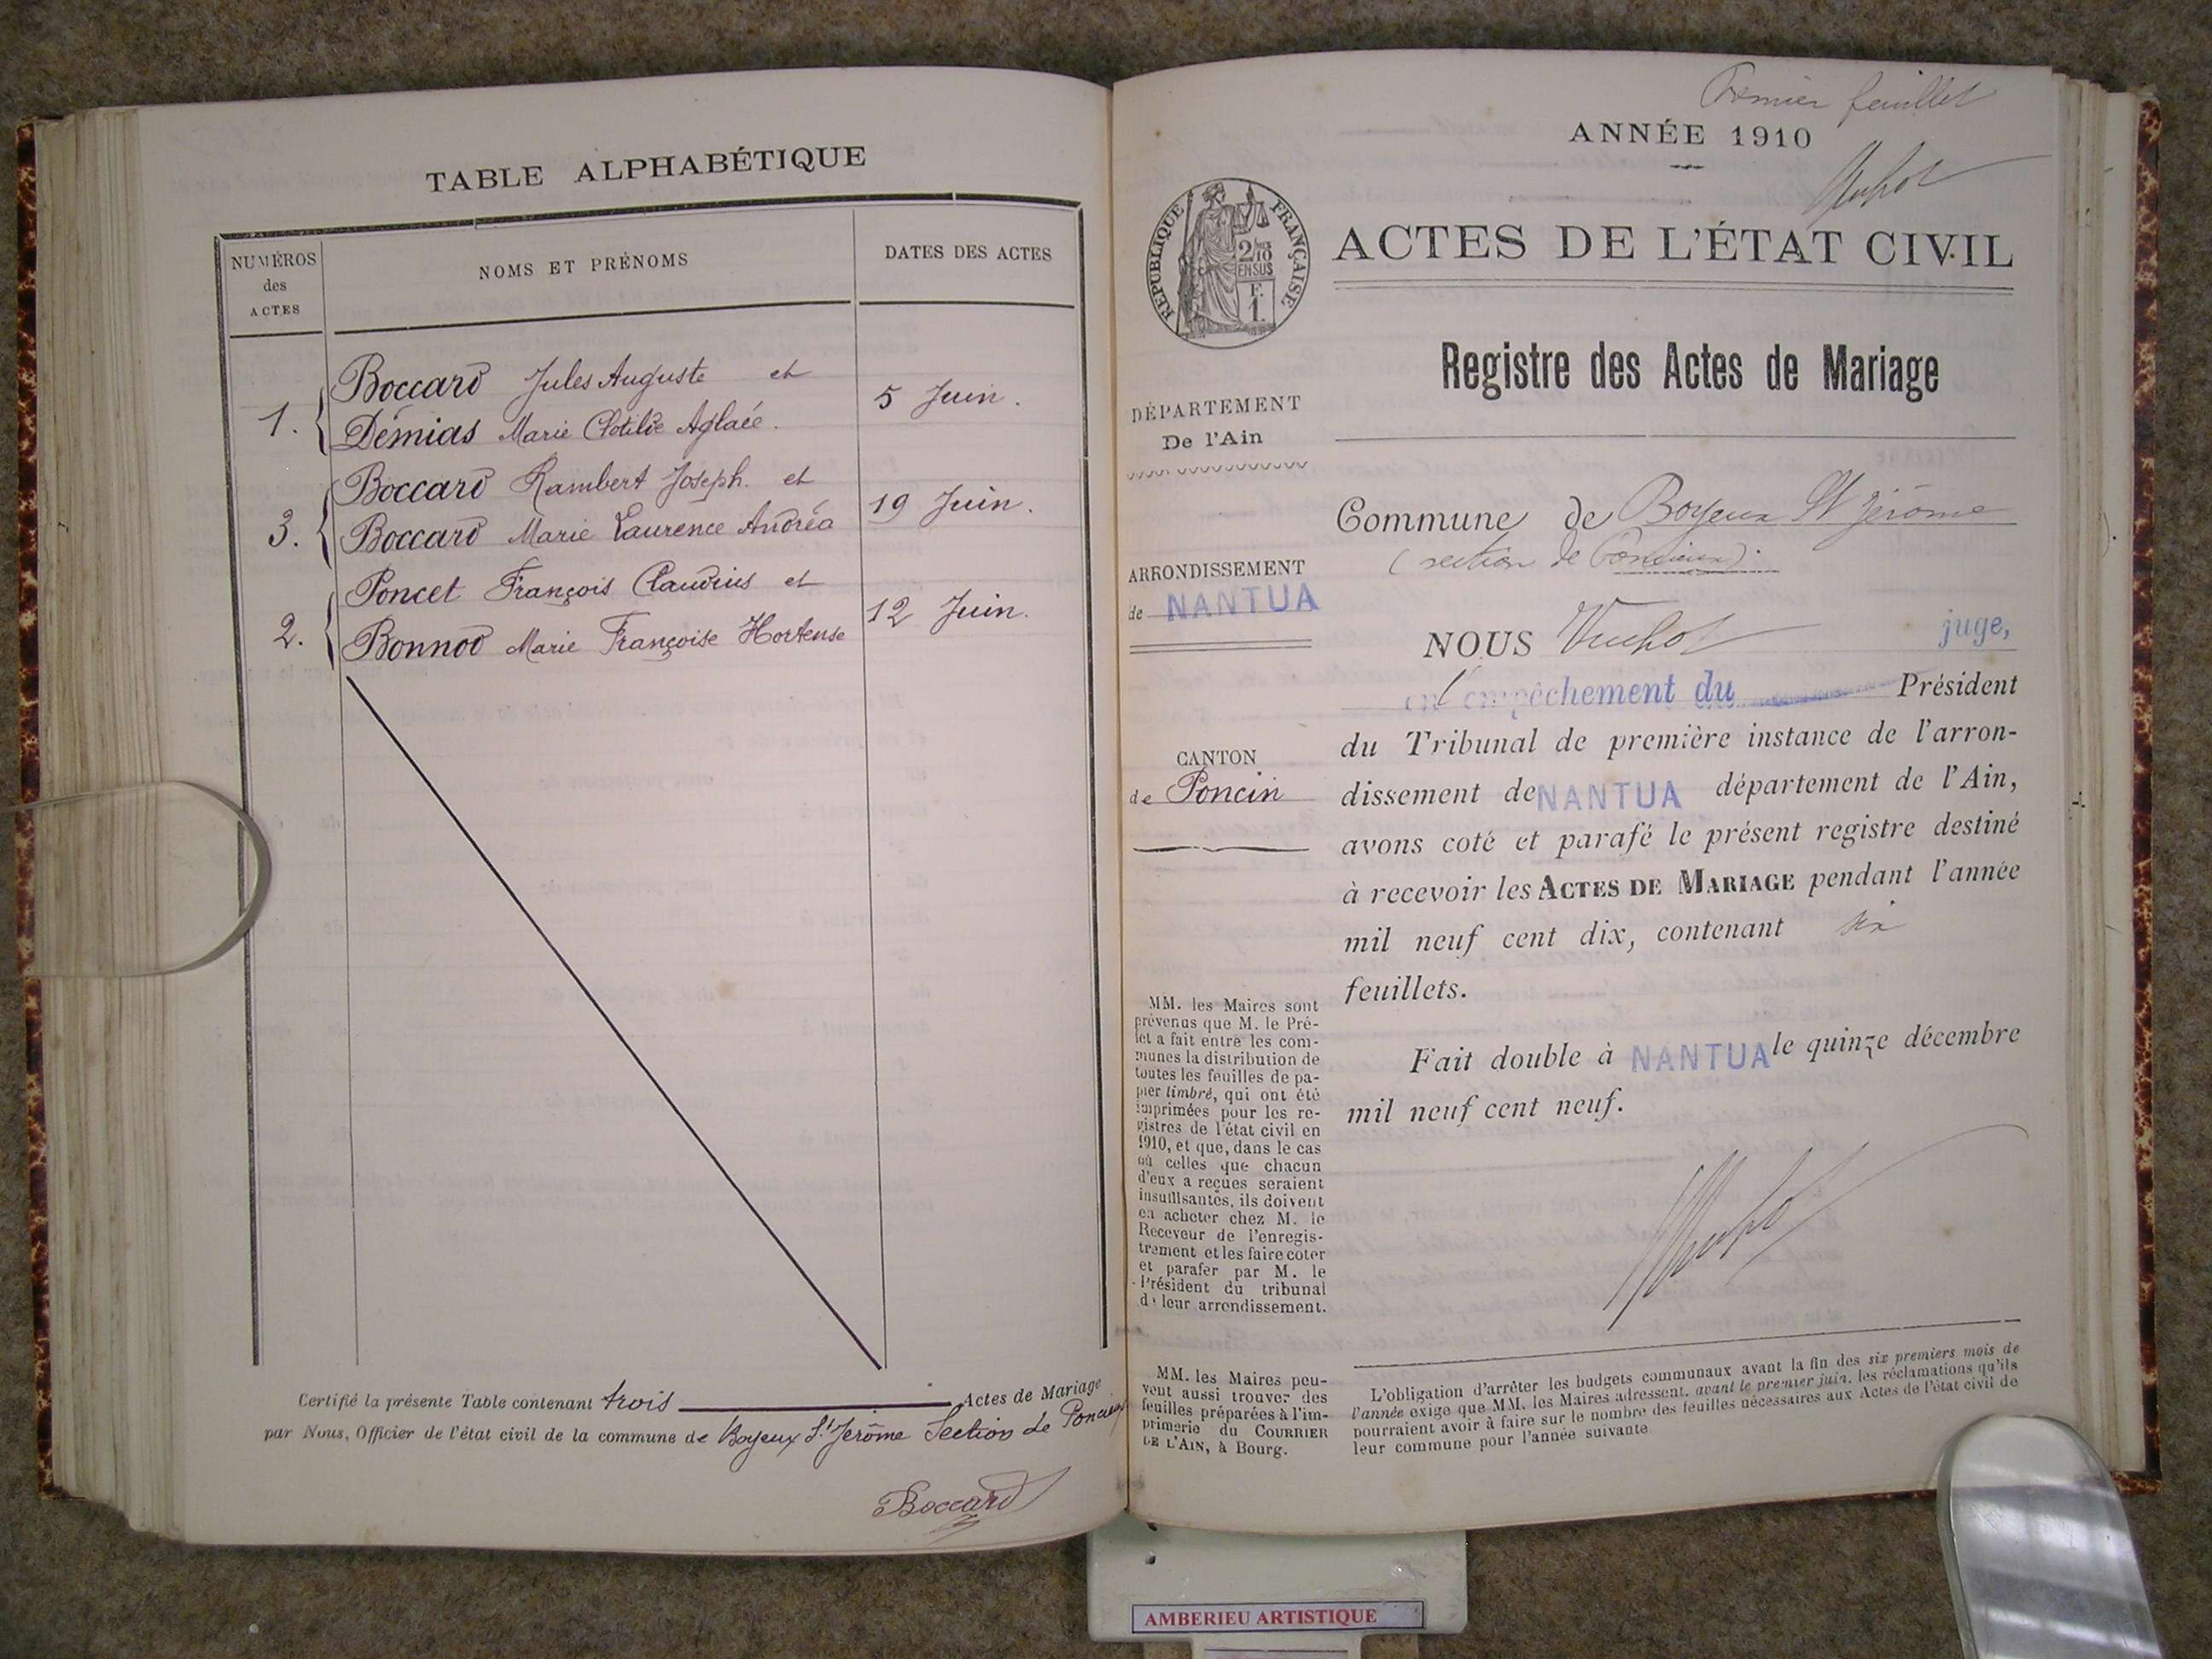 TABLE ALPHABÉTIQUE
NUMÉROS
des
ACTES
NOMS ET PRÉNOMS
DATES DES ACTES
1. Boccard Jules Auguste et
Démias Marie Clotilde Aglaée.
5 Juin.
3. Boccard Rambert Joseph. et
Boccard Marie Laurence Andréa
19 Juin.
2. Poncet François Claudius et
Bonnod Marie Françoise Hortense
12 Juin.
Certifié la présente Table contenant trois Actes de Mariage
par Nous, Officier de l'état civil de la commune de Boyeux St Jérôme Section de Poncieux
Boccard
Premier feuillet
ANNÉE 1910
RÉPUBLIQUE FRANÇAISE
2/10
EN SUS
F.
1.
ACTES DE L'ÉTAT CIVIL
Registre des Actes de Mariage
DÉPARTEMENT
De l'Ain
ARRONDISSEMENT
de NANTUA
CANTON
de Poncin
MM. les Maires sont
prévenus que M. le Pré-
fet a fait entre les com-
munes la distribution de
toutes les feuilles de pa-
pier timbré, qui ont été
imprimées pour les re-
gistres de l'état civil en
1910, et que, dans le cas
où celles que chacun
d'eux a reçues seraient
insuffisantes, ils doivent
en acheter chez M. le
Receveur de l'enregis-
trement et les faire coter
et parafer par M. le
Président du tribunal
de leur arrondissement.
MM. les Maires peu-
vent aussi trouver des
feuilles préparées à l'im-
primerie du COURRIER
DE L'AIN, à Bourg.
Commune de Boyeux St Jérôme
(section de Poncieux).
NOUS Vuchot juge,
empêchement du Président
du Tribunal de première instance de l'arron-
dissement de NANTUA département de l'Ain,
avons coté et parafé le présent registre destiné
à recevoir les ACTES DE MARIAGE pendant l'année
mil neuf cent dix, contenant six
feuillets.
Fait double à NANTUA le quinze décembre
mil neuf cent neuf.
L'obligation d'arrêter les budgets communaux avant la fin des six premiers mois de
l'année exige que MM. les Maires adressent, avant le premier juin, les réclamations qu'ils
pourraient avoir à faire sur le nombre des feuilles nécessaires aux Actes de l'état civil de
leur commune pour l'année suivante
AMBERIEU ARTISTIQUE